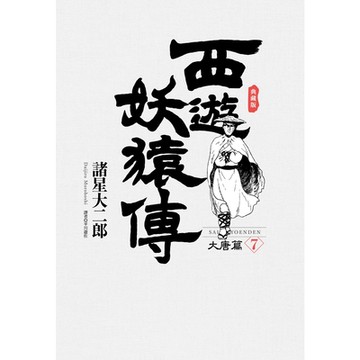 西遊
妖猿傳
典藏版
大唐篇
7
諸星大二郎
Daijiro Morohoshi